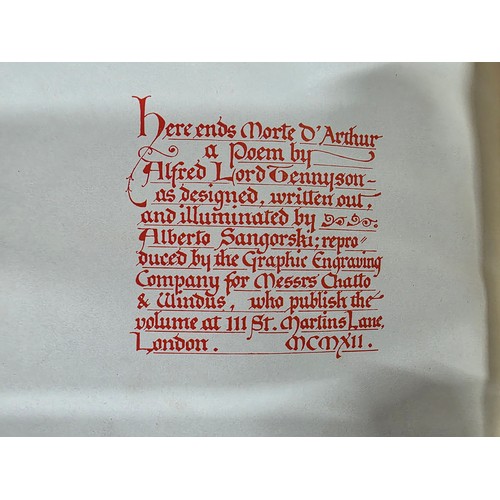 Here ends Morte D'Arthur
a Poem by
Alfred Lord Tennyson-
as designed, written out,
and illuminated by
Alberto Sangorski; repro=
duced by the Graphic Engraving
Company for Messrs Chatto
& Windus, who publish the
volume at 111 St. Martins Lane,
London. MCMXII.